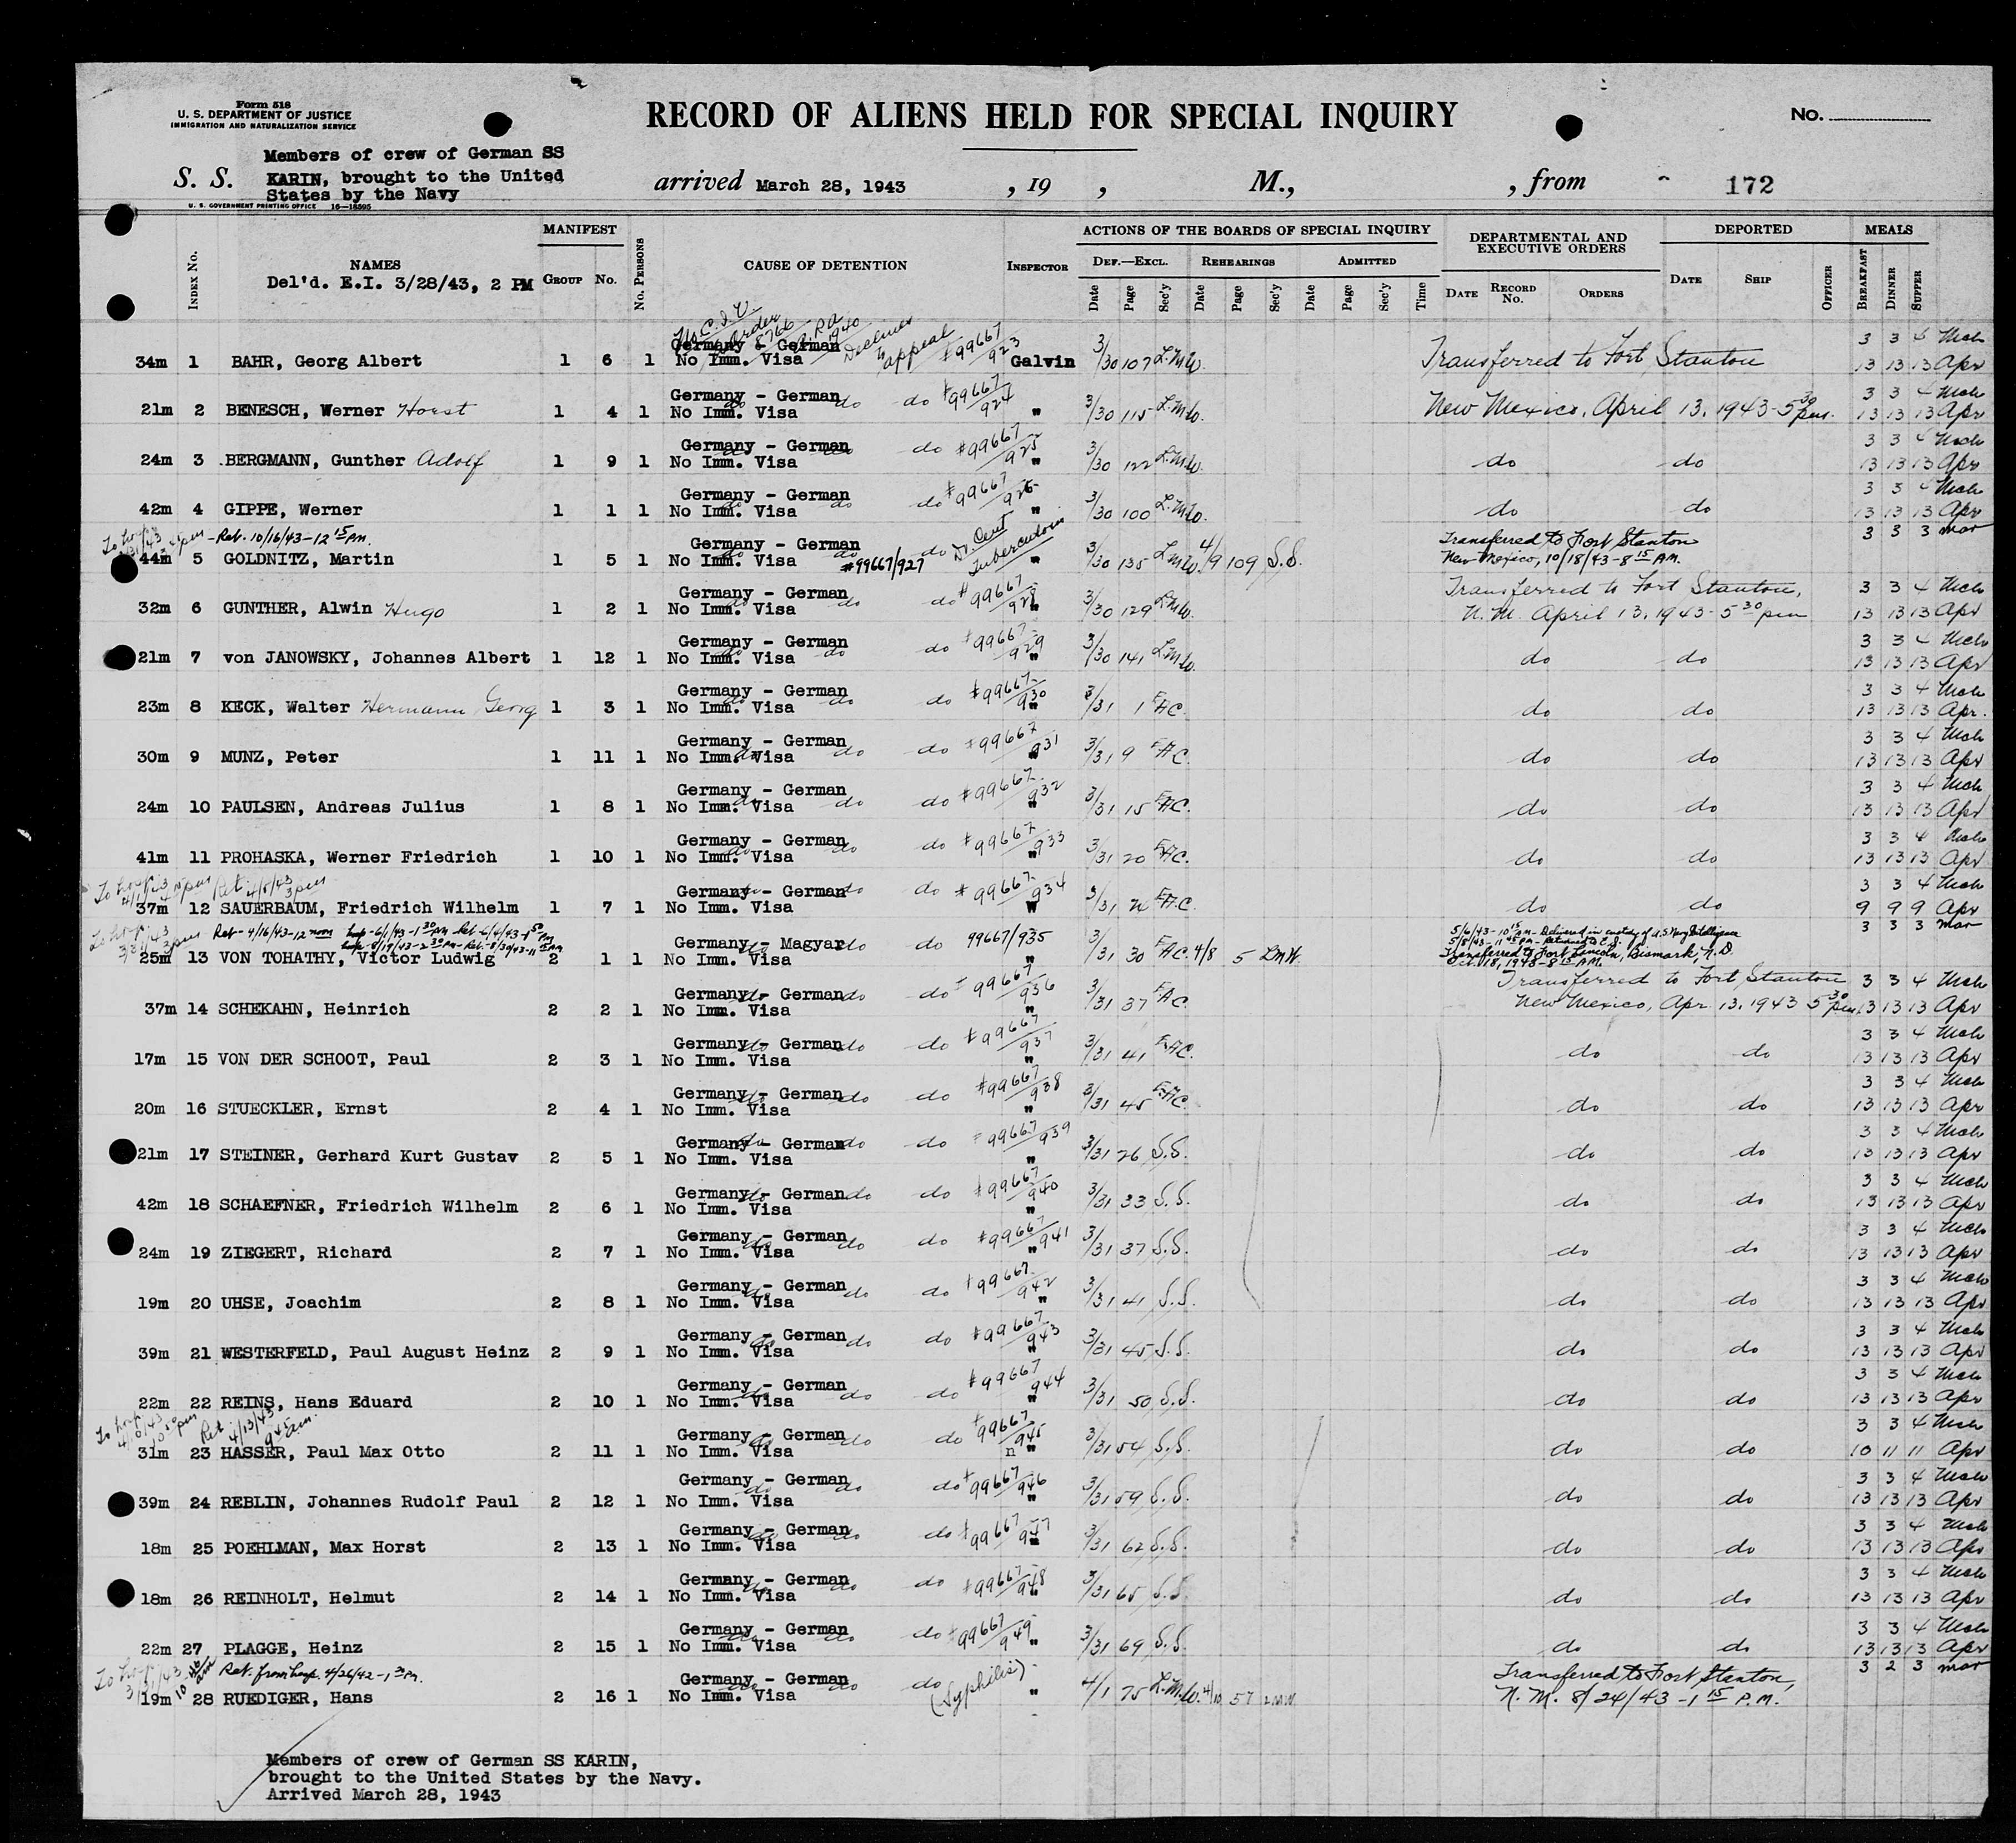 Form 518
U. S. DEPARTMENT OF JUSTICE
IMMIGRATION AND NATURALIZATION SERVICE
RECORD OF ALIENS HELD FOR SPECIAL INQUIRY
No.
S. S. Members of crew of German SS
KARIN, brought to the United
States by the Navy
arrived March 28, 1943 , 19 , M., , from 172
U. S. GOVERNMENT PRINTING OFFICE 16—18595
INDEX No. NAMES MANIFEST No. PERSONS CAUSE OF DETENTION INSPECTOR ACTIONS OF THE BOARDS OF SPECIAL INQUIRY DEPARTMENTAL AND EXECUTIVE ORDERS DEPORTED MEALS
Del'd. E.I. 3/28/43, 2 PM GROUP No. DEF.—EXCL. REHEARINGS ADMITTED
Date Page Sec'y Date Page Sec'y Date Page Sec'y Time DATE RECORD No. ORDERS DATE SHIP OFFICER BREAKFAST DINNER SUPPER
Germany - German Declines to appeal #99667/923 3 3 4 Mch
34m 1 BAHR, Georg Albert 1 6 1 No Imm. Visa Galvin 3/30 107 L.M.W. Transferred to Fort Stanton 13 13 13 Apr
Germany - German do do #99667/924 3 3 4 Mch
21m 2 BENESCH, Werner Horst 1 4 1 No Imm. Visa " 3/30 115 L.M.W. New Mexico, April 13, 1943 - 5 30 pm. 13 13 13 Apr
Germany - German do #99667/925 3 3 4 Mch
24m 3 BERGMANN, Gunther Adolf 1 9 1 No Imm. Visa " 3/30 122 L.M.W. do do 13 13 13 Apr
Germany - German do #99667/926 3 3 4 Mch
42m 4 GIPPE, Werner 1 1 1 No Imm. Visa " 3/30 100 L.M.W. do do 13 13 13 Apr
Ret. 10/16/43-12 15 PM. Germany - German do do Dr. Cert Tuberculosis Transferred to Fort Stanton 3 3 3 mar
44m 5 GOLDNITZ, Martin 1 5 1 No Imm. Visa #99667/927 " 3/30 135 L.M.W. 4/9 109 S.S. New Mexico, 10/18/43-8 15 AM.
Germany - German do #99667/928 Transferred to Fort Stanton, 3 3 4 Mch
32m 6 GUNTHER, Alwin Hugo 1 2 1 No Imm. Visa do " 3/30 129 L.M.W. N.M. April 13, 1943 - 5 30 pm 13 13 13 Apr
Germany - German do #99667/929 3 3 4 Mch
21m 7 von JANOWSKY, Johannes Albert 1 12 1 No Imm. Visa do " 3/30 141 L.M.W. do do 13 13 13 Apr
Germany - German do #99667/930 3 3 4 Mch
23m 8 KECK, Walter Hermann Georg 1 3 1 No Imm. Visa do " 3/31 1 F.A.C. do do 13 13 13 Apr.
Germany - German do do #99667/931 3 3 4 Mch
30m 9 MUNZ, Peter 1 11 1 No Imm. Visa " 3/31 9 F.A.C. do do 13 13 13 Apr
Germany - German do do #99667/932 3 3 4 Mch
24m 10 PAULSEN, Andreas Julius 1 8 1 No Imm. Visa " 3/31 15 F.A.C. do do 13 13 13 Apr
Germany - German do do #99667/933 3 3 4 Mch
41m 11 PROHASKA, Werner Friedrich 1 10 1 No Imm. Visa " 3/31 20 F.A.C. do do 13 13 13 Apr
Ret. 4/8/43 3 pm Germany - German do do #99667/934 3 3 4 Mch
37m 12 SAUERBAUM, Friedrich Wilhelm 1 7 1 No Imm. Visa " 3/31 F.A.C. do do 9 9 9 Apr
Ret-4/16/43-12 noon hosp-6/1/43-1 30 PM Ret-6/4/43 5/6/43-10 15 Am-Delivered in custody of U.S. Navy Intelligence 3 3 3 mar
Germany - Magyar do do 99667/935 5/8/43-11 45 PM-Returned to E.I.
25m 13 VON TOHATHY, Victor Ludwig 2 1 1 No Imm. Visa " 3/31 30 F.A.C. 4/8 5 LMW. Transferred to Fort Lincoln, Bismark, N.D.
Oct. 18, 1943-8 15 A.M.
Germany - German do do #99667/936 Transferred to Fort Stanton 3 3 4 Mch
37m 14 SCHEKAHN, Heinrich 2 2 1 No Imm. Visa " 3/31 37 F.A.C. New Mexico, Apr. 13, 1943 5 30 pm 13 13 13 Apr
Germany - German do do #99667/937 3 3 4 Mch
17m 15 VON DER SCHOOT, Paul 2 3 1 No Imm. Visa " 3/31 41 F.A.C. do do 13 13 13 Apr
Germany - German do do #99667/938 3 3 4 Mch
20m 16 STUECKLER, Ernst 2 4 1 No Imm. Visa " 3/31 45 F.A.C. do do 13 13 13 Apr
Germany - German do do #99667/939 3 3 4 Mch
21m 17 STEINER, Gerhard Kurt Gustav 2 5 1 No Imm. Visa " 3/31 26 S.S. do do 13 13 13 Apr
Germany - German do do #99667/940 3 3 4 Mch
42m 18 SCHAEFNER, Friedrich Wilhelm 2 6 1 No Imm. Visa " 3/31 33 S.S. do do 13 13 13 Apr
Germany - German do do #99667/941 3 3 4 Mch
24m 19 ZIEGERT, Richard 2 7 1 No Imm. Visa " 3/31 37 S.S. do do 13 13 13 Apr
Germany - German do do #99667/942 3 3 4 Mch
19m 20 UHSE, Joachim 2 8 1 No Imm. Visa " 3/31 41 S.S. do do 13 13 13 Apr
Germany - German do do #99667/943 3 3 4 Mch
39m 21 WESTERFELD, Paul August Heinz 2 9 1 No Imm. Visa " 3/31 45 S.S. do do 13 13 13 Apr
Germany - German do do #99667/944 3 3 4 Mch
22m 22 REINS, Hans Eduard 2 10 1 No Imm. Visa " 3/31 50 S.S. do do 13 13 13 Apr
Ret 4/13/43 9 45 am. Germany - German do do #99667/945 3 3 4 Mch
31m 23 HASSER, Paul Max Otto 2 11 1 No Imm. Visa n " 3/31 54 S.S. do do 10 11 11 Apr
Germany - German do #99667/946 3 3 4 Mch
39m 24 REBLIN, Johannes Rudolf Paul 2 12 1 No Imm. Visa do " 3/31 59 S.S. do do 13 13 13 Apr
Germany - German do do #99667/947 3 3 4 Mch
18m 25 POEHLMAN, Max Horst 2 13 1 No Imm. Visa " 3/31 62 S.S. do do 13 13 13 Apr
Germany - German do do #99667/948 3 3 4 Mch
18m 26 REINHOLT, Helmut 2 14 1 No Imm. Visa " 3/31 65 S.S. do do 13 13 13 Apr
Germany - German do do #99667/949 3 3 4 Mch
22m 27 PLAGGE, Heinz 2 15 1 No Imm. Visa " 3/31 69 S.S. do do 13 13 13 Apr
Ret. from hosp. 4/26/42-1 Germany - German do do (Syphilis) Transferred to Fort Stanton, 3 2 3 mar
19m 28 RUEDIGER, Hans 2 16 1 No Imm. Visa " 4/1 75 L.M.W. 4/10 57 LMW. N.M. 8/24/43-1 15 P.M.
Members of crew of German SS KARIN,
brought to the United States by the Navy.
Arrived March 28, 1943